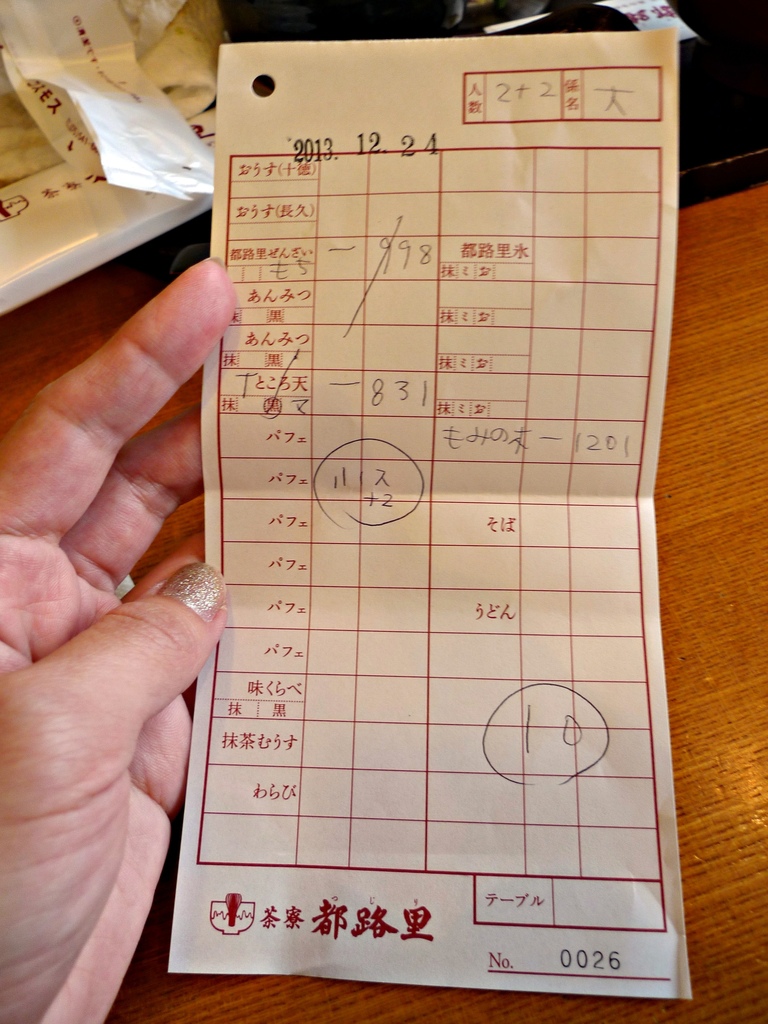 人数 2+2 係名 大
2013. 12. 24
おうす(十徳)
おうす(長久)
都路里ぜんざい 一 998 都路里氷
もち 抹 ミ お
あんみつ
抹 黒 抹 ミ お
あんみつ
抹 黒 抹 ミ お
Tところ天 一 831
抹 黒 抹 ミ お
パフェ もみの木 一 1201
パフェ
+2
パフェ そば
パフェ
パフェ うどん
パフェ
味くらべ
抹 黒
10
抹茶むうす
わらび
テーブル
茶寮 都路里
つじり
No. 0026